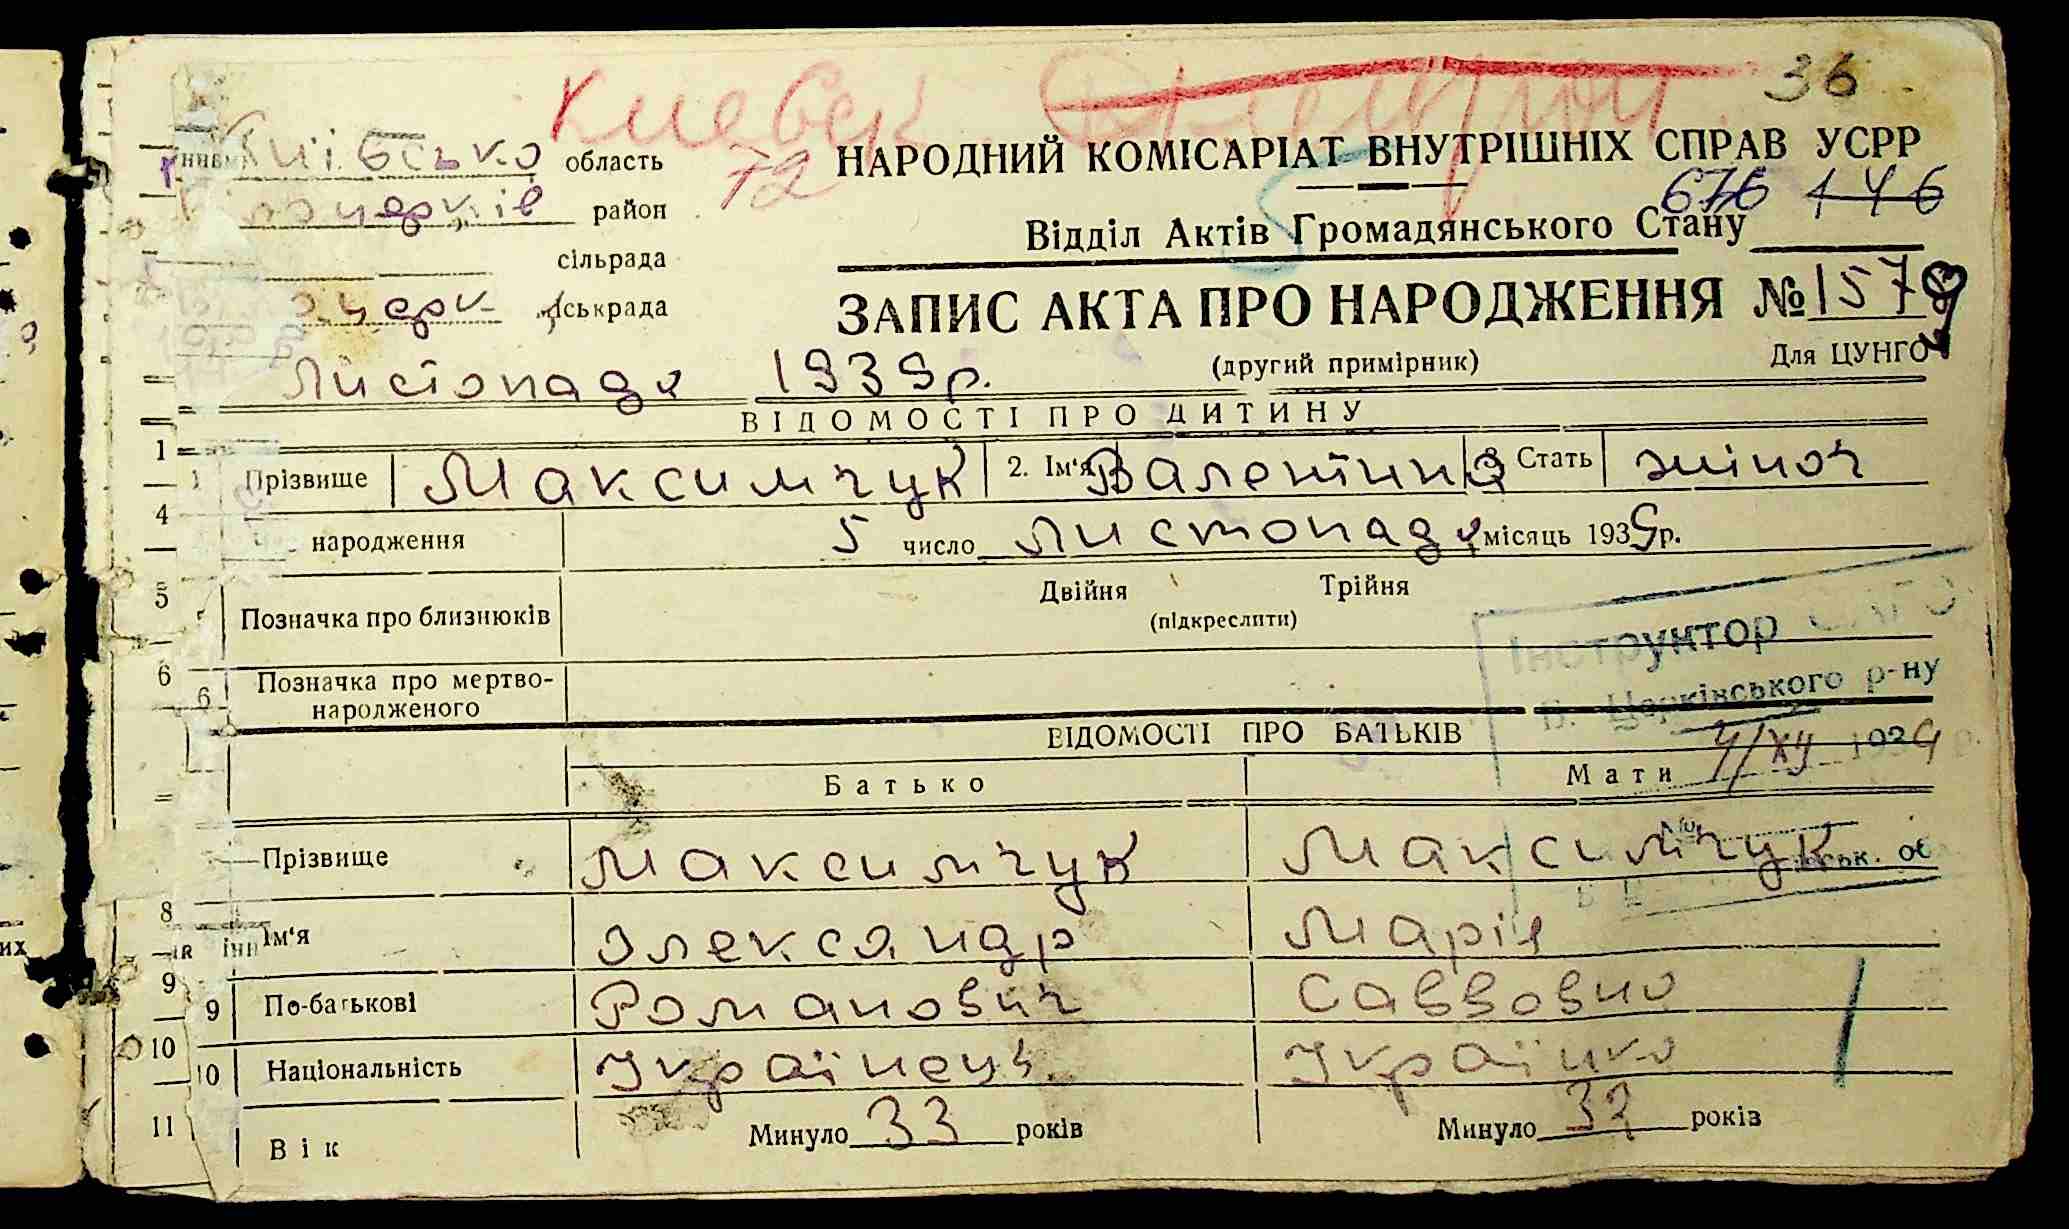 Киевск
36
Київсько область
район
72
НАРОДНИЙ КОМІСАРІАТ ВНУТРІШНІХ СПРАВ УСРР
676 146
Відділ Актів Громадянського Стану
сільрада
міськрада
ЗАПИС АКТА ПРО НАРОДЖЕННЯ № 1579
(другий примірник) Для ЦУНГО
Листопада 1939р.
ВІДОМОСТІ ПРО ДИТИНУ
1 Прізвище Максимчук 2. Ім'я Валентина 3 Стать жіноч
4 народження 5 число Листопада місяць 1939р.
5 Позначка про близнюків Двійня Трійня
(підкреслити)
Інструктор
Б. Церківського р-ну
6 6 Позначка про мертво-
народженого
ВІДОМОСТІ ПРО БАТЬКІВ
Батько Мати
Прізвище Максимчук Максимчук
8 Ім'я Олександр Марія
9 9 По-батькові Романович Саввовно
10 10 Національність Українець Українко
11 Вік Минуло 33 років Минуло 32 років